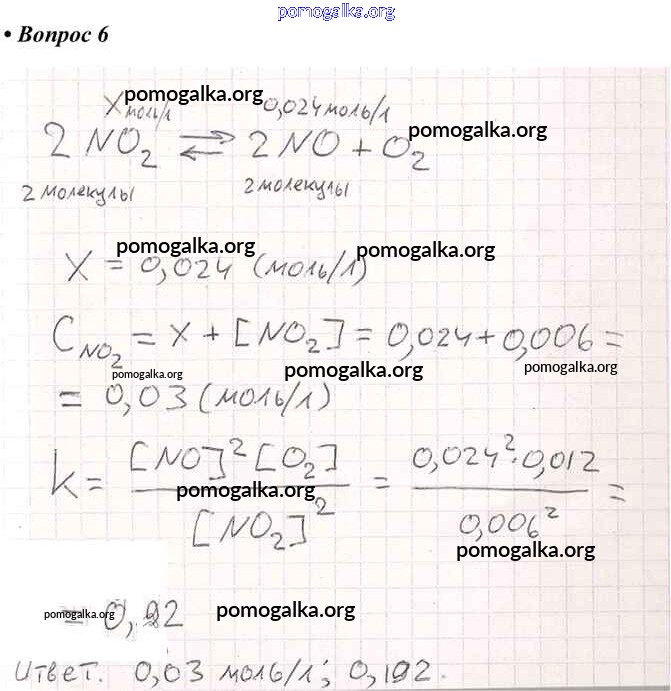 pomogalka.org
• Вопрос 6
pomogalka.org
X моль/л 0,024 моль/л
pomogalka.org
2 NO₂ ⇌ 2 NO + O₂
2 молекулы 2 молекулы
pomogalka.org pomogalka.org
X = 0,024 (моль/л)
C NO₂ = X + [NO₂] = 0,024 + 0,006 =
pomogalka.org pomogalka.org pomogalka.org
= 0,03 (моль/л)
K = [NO]² [O₂] / [NO₂]² = 0,024² · 0,012 / 0,006² =
pomogalka.org
pomogalka.org
pomogalka.org pomogalka.org
= 0,192
Ответ. 0,03 моль/л; 0,192.